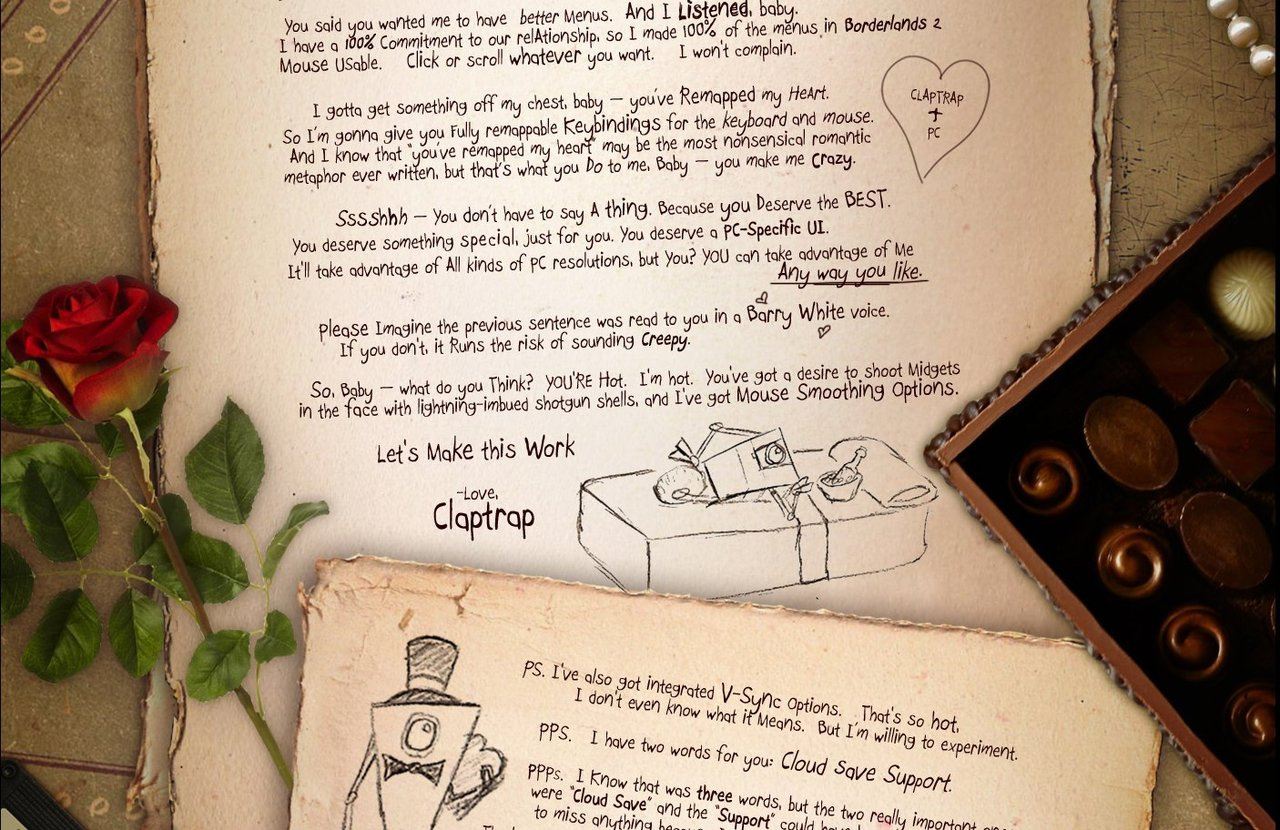 You said you wanted me to have better Menus. And I Listened, baby.
I have a 100% Commitment to our relAtionship, so I made 100% of the menus in Borderlands 2
Mouse USable. Click or scroll whatever you want. I won't complain.
I gotta get something off my chest, baby — you've Remapped my HeArt.
So I'm gonna give you Fully remappable Keybindings for the keyboard and mouse.
And I know that "you've remapped my heart" may be the most nonsensical romantic
metaphor ever written, but that's what you Do to me, Baby — you make me Crazy.
CLAPTRAP
+
PC
Sssshhh — You don't have to say A thing. Because you Deserve the BEST.
You deserve something special, just for you. You deserve a PC-Specific UI.
It'll take advantage of All kinds of PC resolutions, but You? YOU can take advantage of Me
Any way you like.
Please Imagine the previous sentence was read to you in a Barry White voice.
If you don't, it Runs the risk of sounding Creepy.
So, Baby — what do you Think? YOU'RE Hot. I'm hot. You've got a desire to shoot Midgets
in the face with lightning-imbued shotgun shells, and I've got Mouse Smoothing Options.
Let's Make this Work
-Love,
Claptrap
PS. I've also got integrated V-Sync Options. That's so hot,
I don't even know what it Means. But I'm willing to experiment.
PPS. I have two words for you: Cloud Save Support.
PPPs. I Know that was three words, but the two really important
were "Cloud Save" and the "Support" could
to miss anything